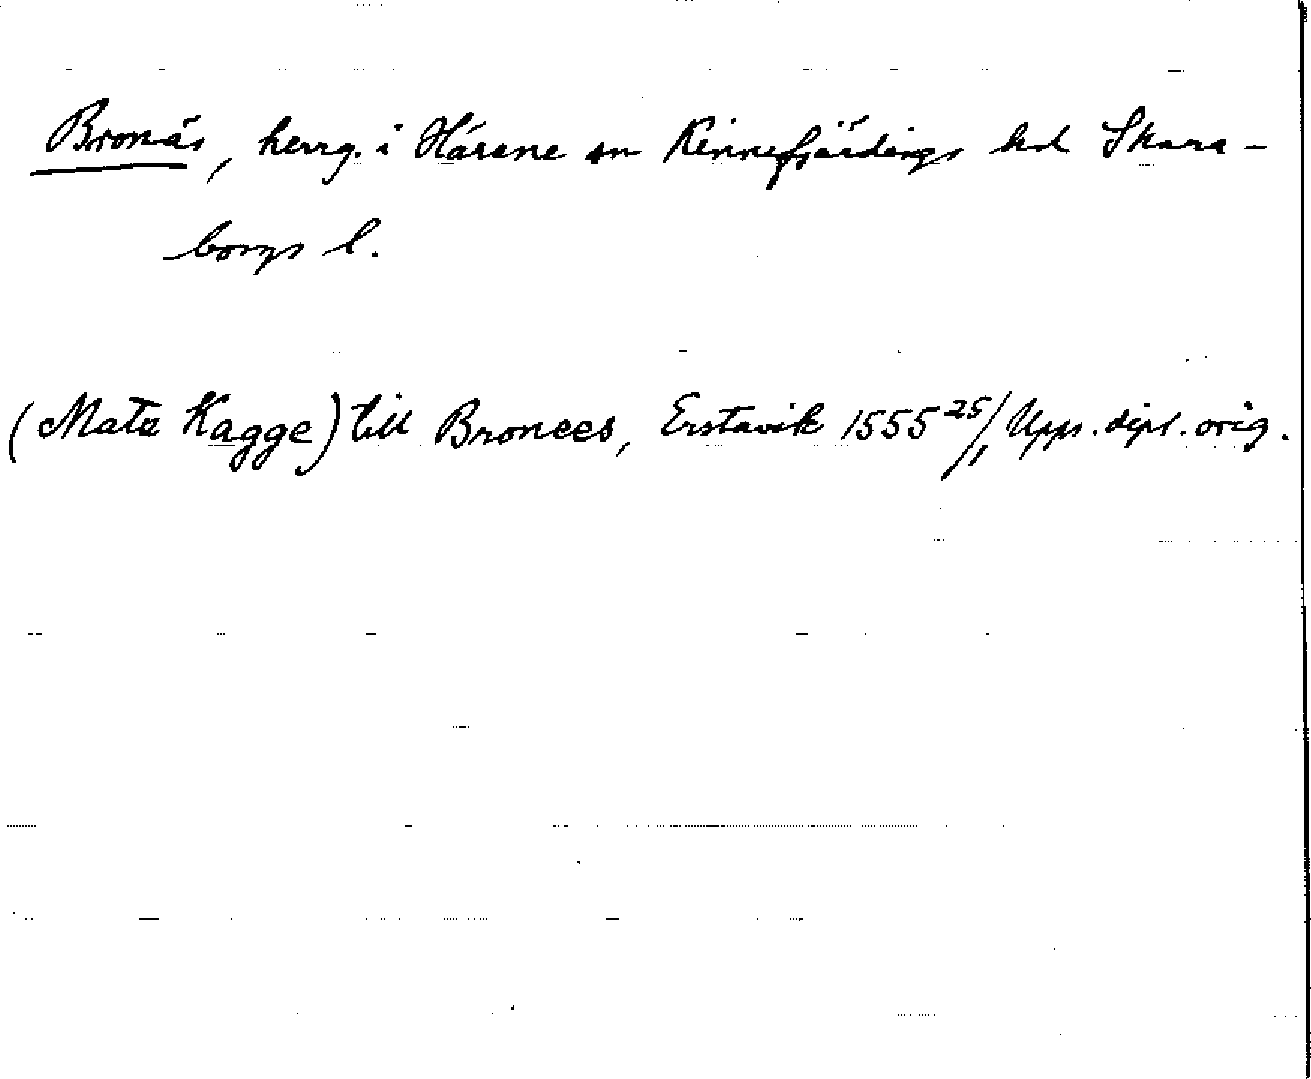 Bronäs, herrg. i Hårene sn Kinnefjärdings hd Skara-
borgs l.
(Mats Kagge) till Bronees, Erstavik 1555 25/1 Upps. dipl. orig.